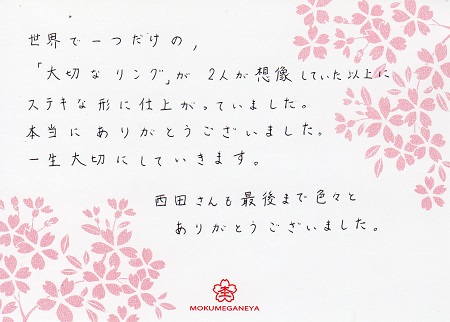 世界で一つだけの,
「大切なリング」が 2人が想像していた以上に
ステキな形に仕上がっていました。
本当にありがとうございました。
一生大切にしていきます。
西田さんも最後まで色々と
ありがとうございました。
MOKUMEGANEYA